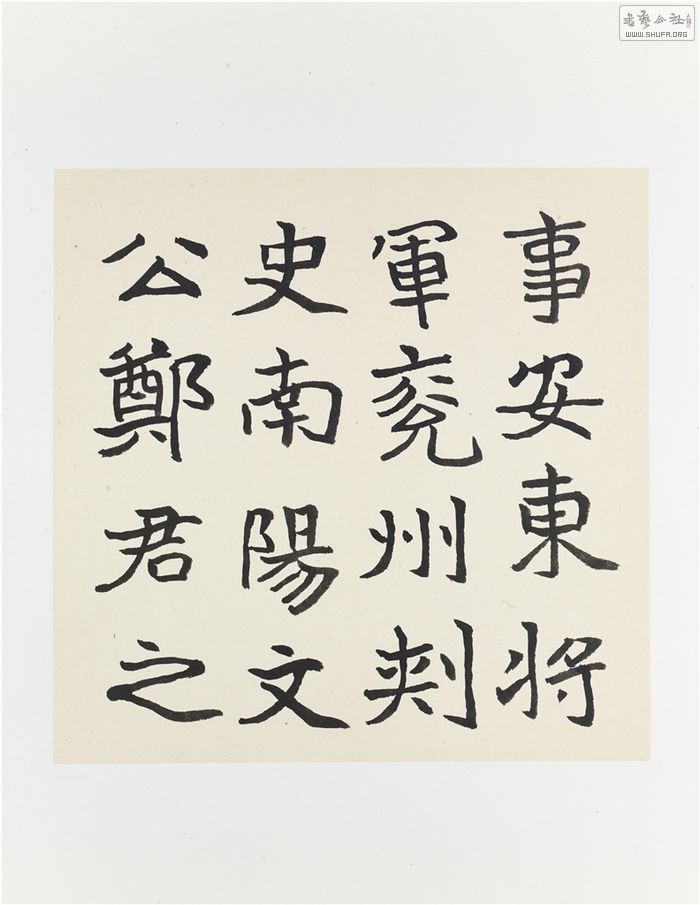 事安東將
軍兗州刺
史南陽文
公鄭君之
書藝公社
WWW.SHUFA.ORG